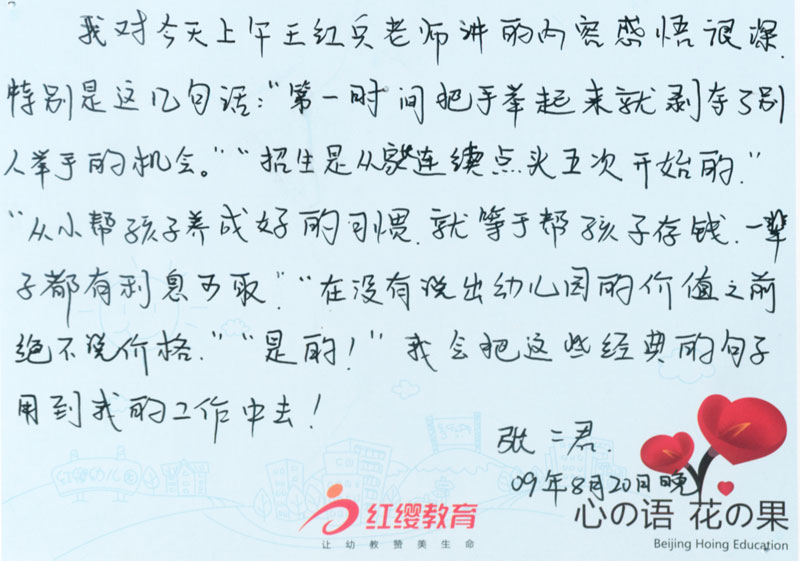 我对今天上午王红兵老师讲的内容感悟很深.
特别是这几句话:“第一时间把手举起来就剥夺了别
人举手的机会。”“招生是从家连续点头五次开始的.”
“从小帮孩子养成好的习惯.就等于帮孩子存钱.一辈
子都有利息可取.”“在没有说出幼儿园的价值之前
绝不说价格.”“是的!”我会把这些经典的句子
用到我的工作中去!
张二君.
09年8月20日晚
红缨幼儿园
红缨教育
让幼教赞美生命
心の语 花の果
Beijing Hoing Education